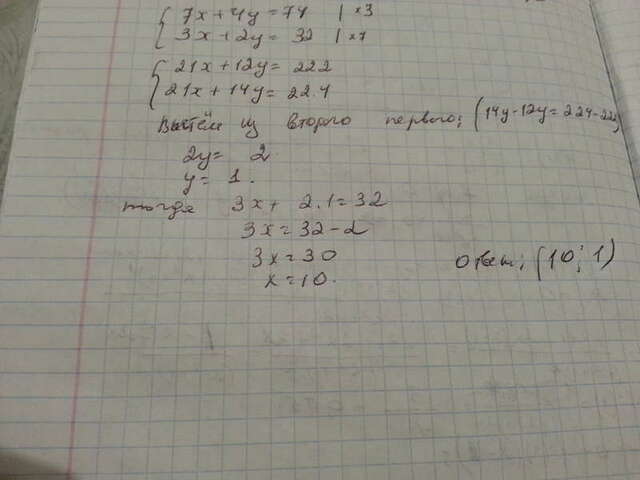 7x + 4y = 74 | ×3
3x + 2y = 32 | ×7
21x + 12y = 222
21x + 14y = 224
Вычтем из второго первого; (14y - 12y = 224 - 222)
2y = 2
y = 1.
тогда 3x + 2·1 = 32
3x = 32 - 2
3x = 30
x = 10.
Ответ; (10; 1)